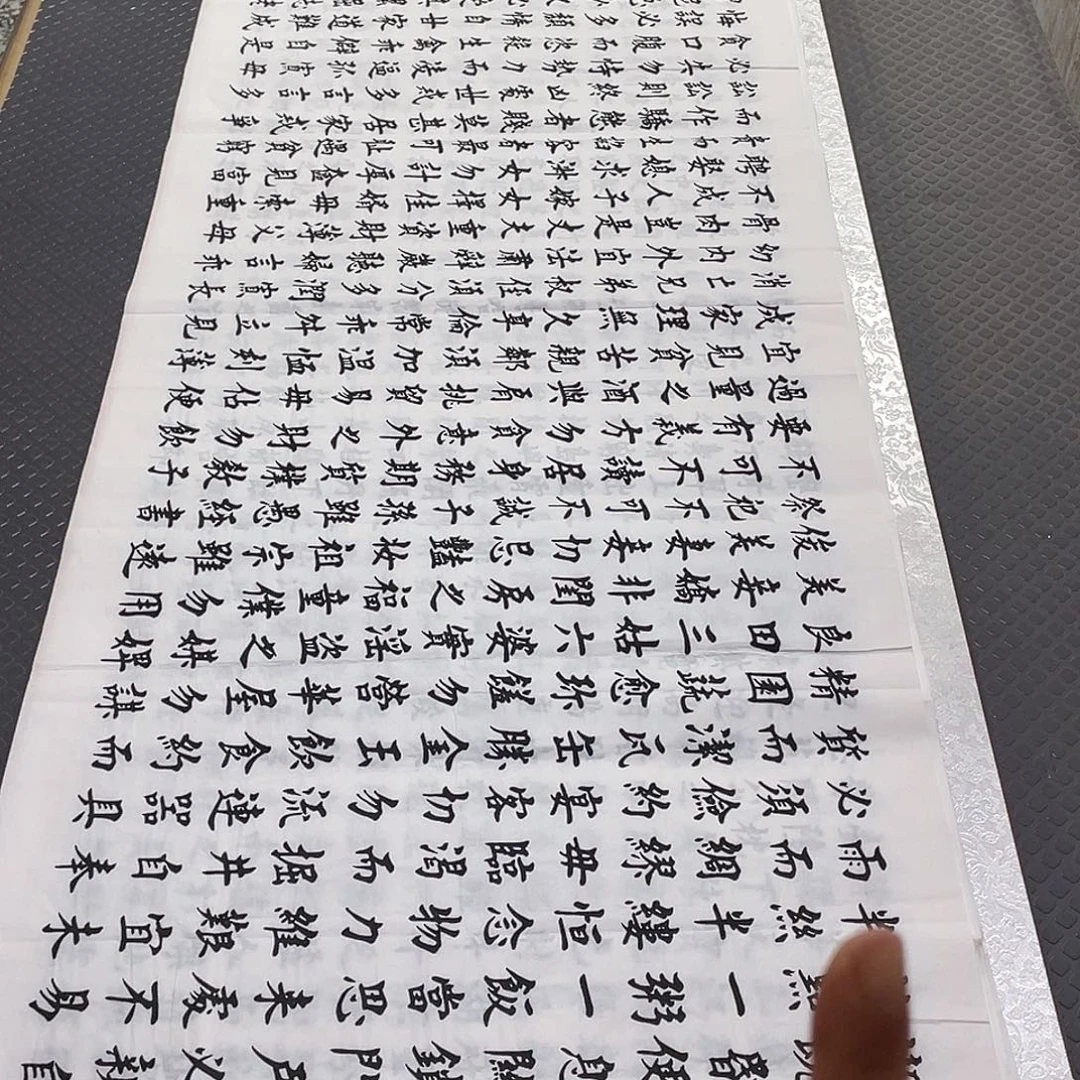 昏便息關鎖門戶必親自
點一粥一飯當思来處不易
半絲半縷恒念物力維艱宜未
雨而綢繆毋臨渴而掘井自奉
必須儉約宴客切勿流連器具
質而潔瓦缶勝金玉飲食約而
精園蔬愈珎饈勿營華屋勿謀
良田三姑六婆實淫盗之媒婢
美妾嬌非閨房之福童僕勿用
俊美妻妾切忌豔妝祖宗雖遠
祭祀不可不誠子孫雖愚經書
不可不讀居身務期質樸教子
要有義方勿貪意外之財勿飲
過量之酒與肩挑貿易毋佔便
宜見貧苦親鄰須加温恤刻薄
成家理無久享倫常乖舛立見
消亡兄弟叔侄須分多潤寡長
幼内外宜法肅辭嚴聽婦言乖
骨肉豈是丈夫重資財薄父母
不成人子嫁女擇佳婿毋索重
聘娶媳求淑女勿計厚奩見富
貴而生諂容者最可恥遇貧窮
而作驕態者賤莫甚居家戒爭
訟訟則終凶處世戒多言言多
必失勿恃勢力而凌逼孤寡毋
貪口腹而恣殺生禽乖僻自是
悔誤必多頹惰自甘家道難成